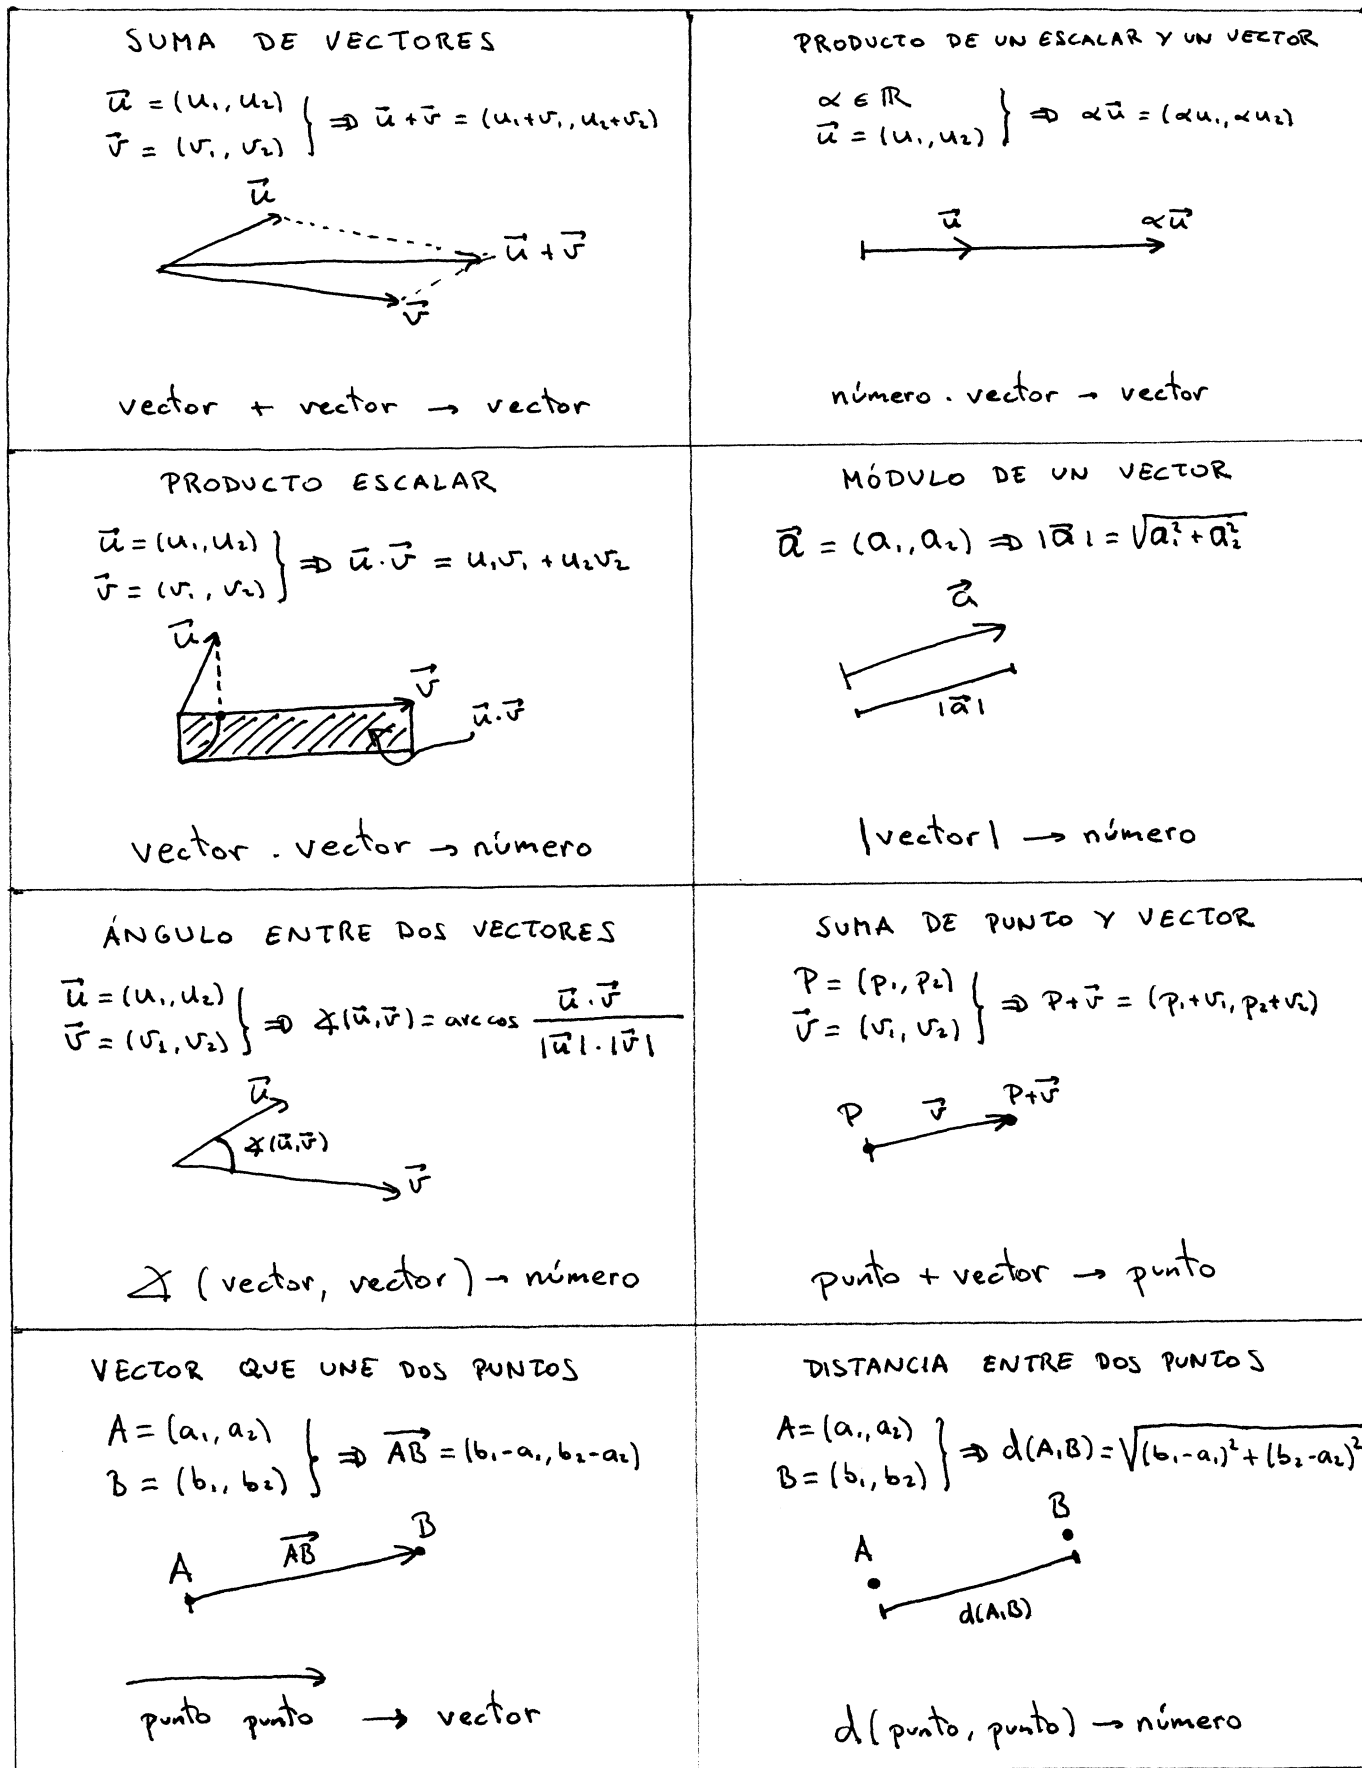 SUMA DE VECTORES
u⃗ = (u₁, u₂)
v⃗ = (v₁, v₂) } ⇒ u⃗ + v⃗ = (u₁+v₁, u₂+v₂)
u⃗
u⃗ + v⃗
v⃗
vector + vector → vector
PRODUCTO DE UN ESCALAR Y UN VECTOR
α ∈ ℝ
u⃗ = (u₁, u₂) } ⇒ αu⃗ = (αu₁, αu₂)
u⃗ αu⃗
número · vector → vector
PRODUCTO ESCALAR
u⃗ = (u₁, u₂)
v⃗ = (v₁, v₂) } ⇒ u⃗ · v⃗ = u₁v₁ + u₂v₂
u⃗
v⃗
u⃗ · v⃗
vector · vector → número
MÓDULO DE UN VECTOR
a⃗ = (a₁, a₂) ⇒ |a⃗| = √(a₁² + a₂²)
a⃗
|a⃗|
|vector| → número
ÁNGULO ENTRE DOS VECTORES
u⃗ = (u₁, u₂)
v⃗ = (v₁, v₂) } ⇒ ∡(u⃗, v⃗) = arc cos (u⃗ · v⃗) / (|u⃗| · |v⃗|)
u⃗
∡(u⃗, v⃗)
v⃗
∡ (vector, vector) → número
SUMA DE PUNTO Y VECTOR
P = (p₁, p₂)
v⃗ = (v₁, v₂) } ⇒ P + v⃗ = (p₁+v₁, p₂+v₂)
P v⃗ P+v⃗
punto + vector → punto
VECTOR QUE UNE DOS PUNTOS
A = (a₁, a₂)
B = (b₁, b₂) } ⇒ AB⃗ = (b₁-a₁, b₂-a₂)
A AB⃗ B
punto punto → vector
DISTANCIA ENTRE DOS PUNTOS
A = (a₁, a₂)
B = (b₁, b₂) } ⇒ d(A,B) = √((b₁-a₁)² + (b₂-a₂)²)
B
A
d(A,B)
d(punto, punto) → número